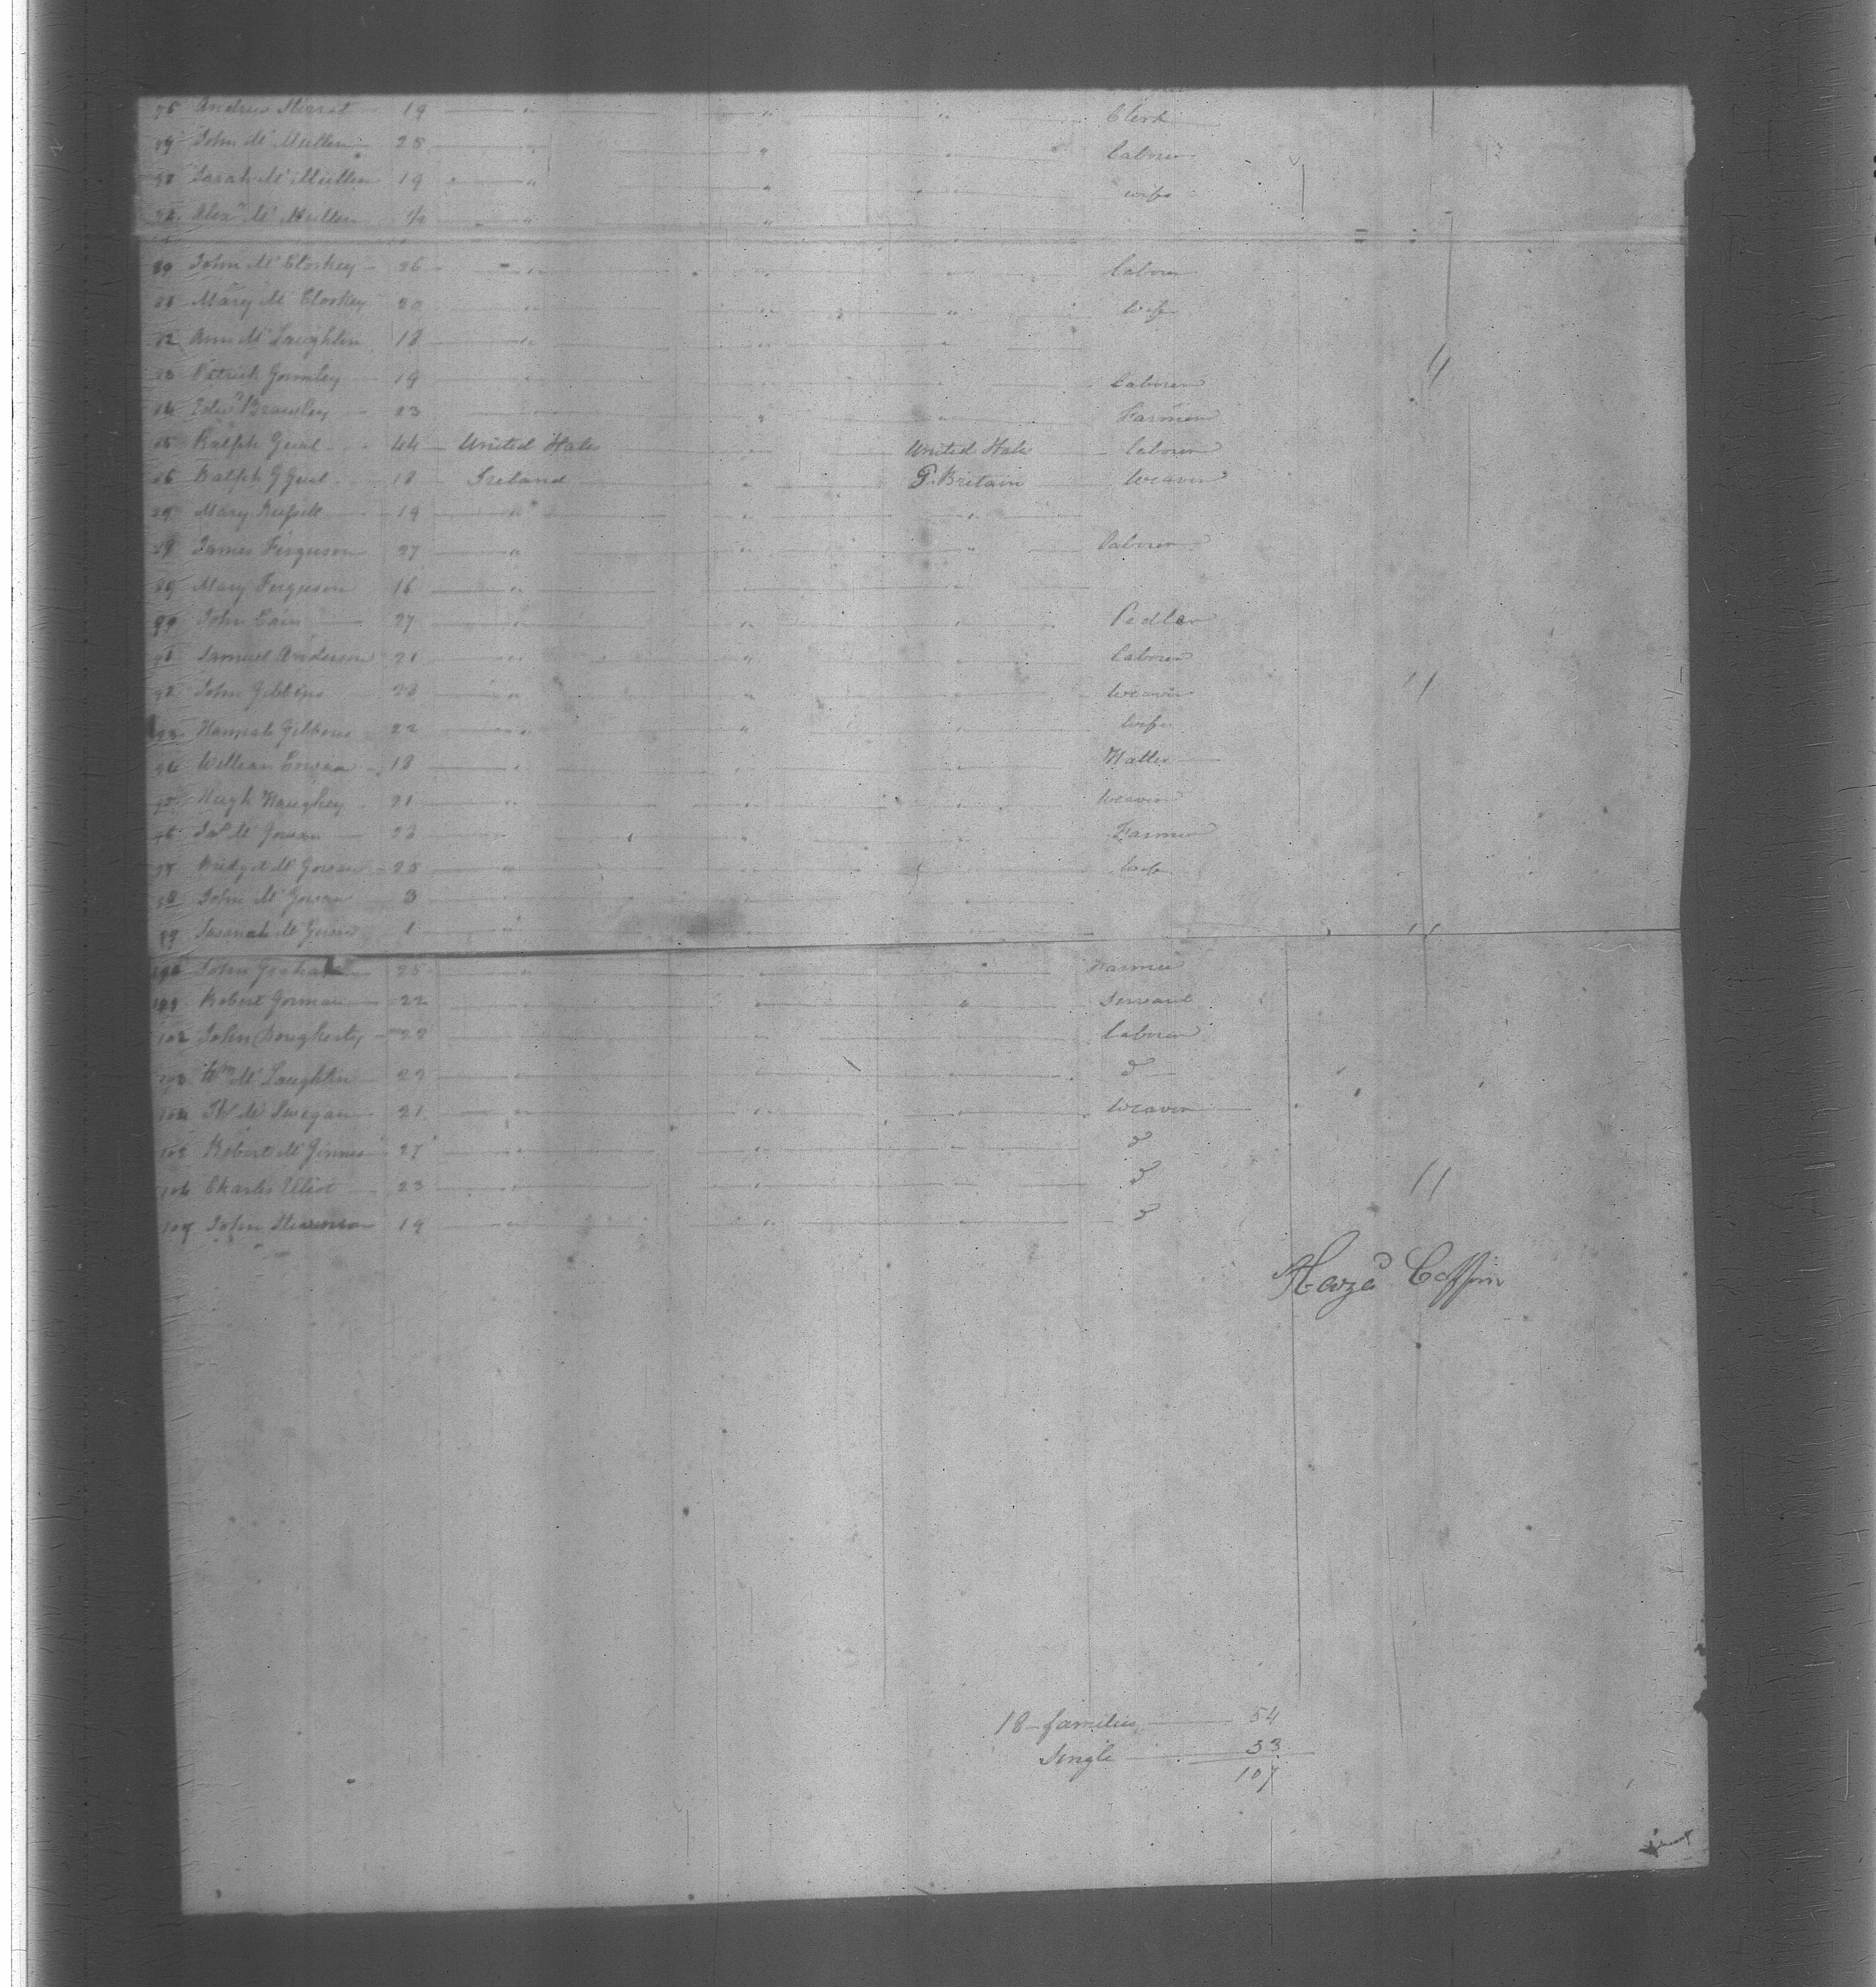 Andrew Sterrat 19 " " " Clerk
John Mc Mullen 25 " " " Laborer
Sarah Mc Mullen 19 " " " wife
Alexr Mc Mullen " "
John Mc Closkey 26 " " " Laborer
Mary Mc Closkey 20 " " " Wife
82 Ann Mc Laughlin 18 " " "
83 Patrick Gormley 19 " " " Laborer
84 Edwd Brawley 23 " " " Farmer
85 Ralph 44 United States " United States Laborer
86 Ralph G 18 Ireland " G. Britain Weaver
Mary Russell 19 " " "
James Ferguson 27 " " " Laborer
89 Mary Ferguson 16 " " "
90 John Cain 27 " " " Pedler
91 Samuel Anderson 21 " " " Laborer
92 John Gibbins 23 " " " Weaver
93 Hannah Gibbins 22 " " " Wife
94 William 18 " " " Hatter
95 Hugh Haughey 21 " " " Weaver
96 Jas Mc Gowan 23 " " Farmer
97 Bridget Mc Gowan 25 " wife
98 John Mc Gowan 3 " " "
99 Susanah Mc Gowan 1 " " "
100 John Graham 25 " " " Farmer
101 Robert Gorman 22 " " " Servant
102 John Dougherty 22 " " " Laborer
103 Wm Mc Laughlin 22 " " " do
104 Mc Swegan 21 " " " Weaver
105 Robert Mc Ginnis 27 " " " do
106 Charles Uliot 23 " " " do
107 John Stevenson 19 " " " do
Hezd Coffin
18 families 54
Single 53
107